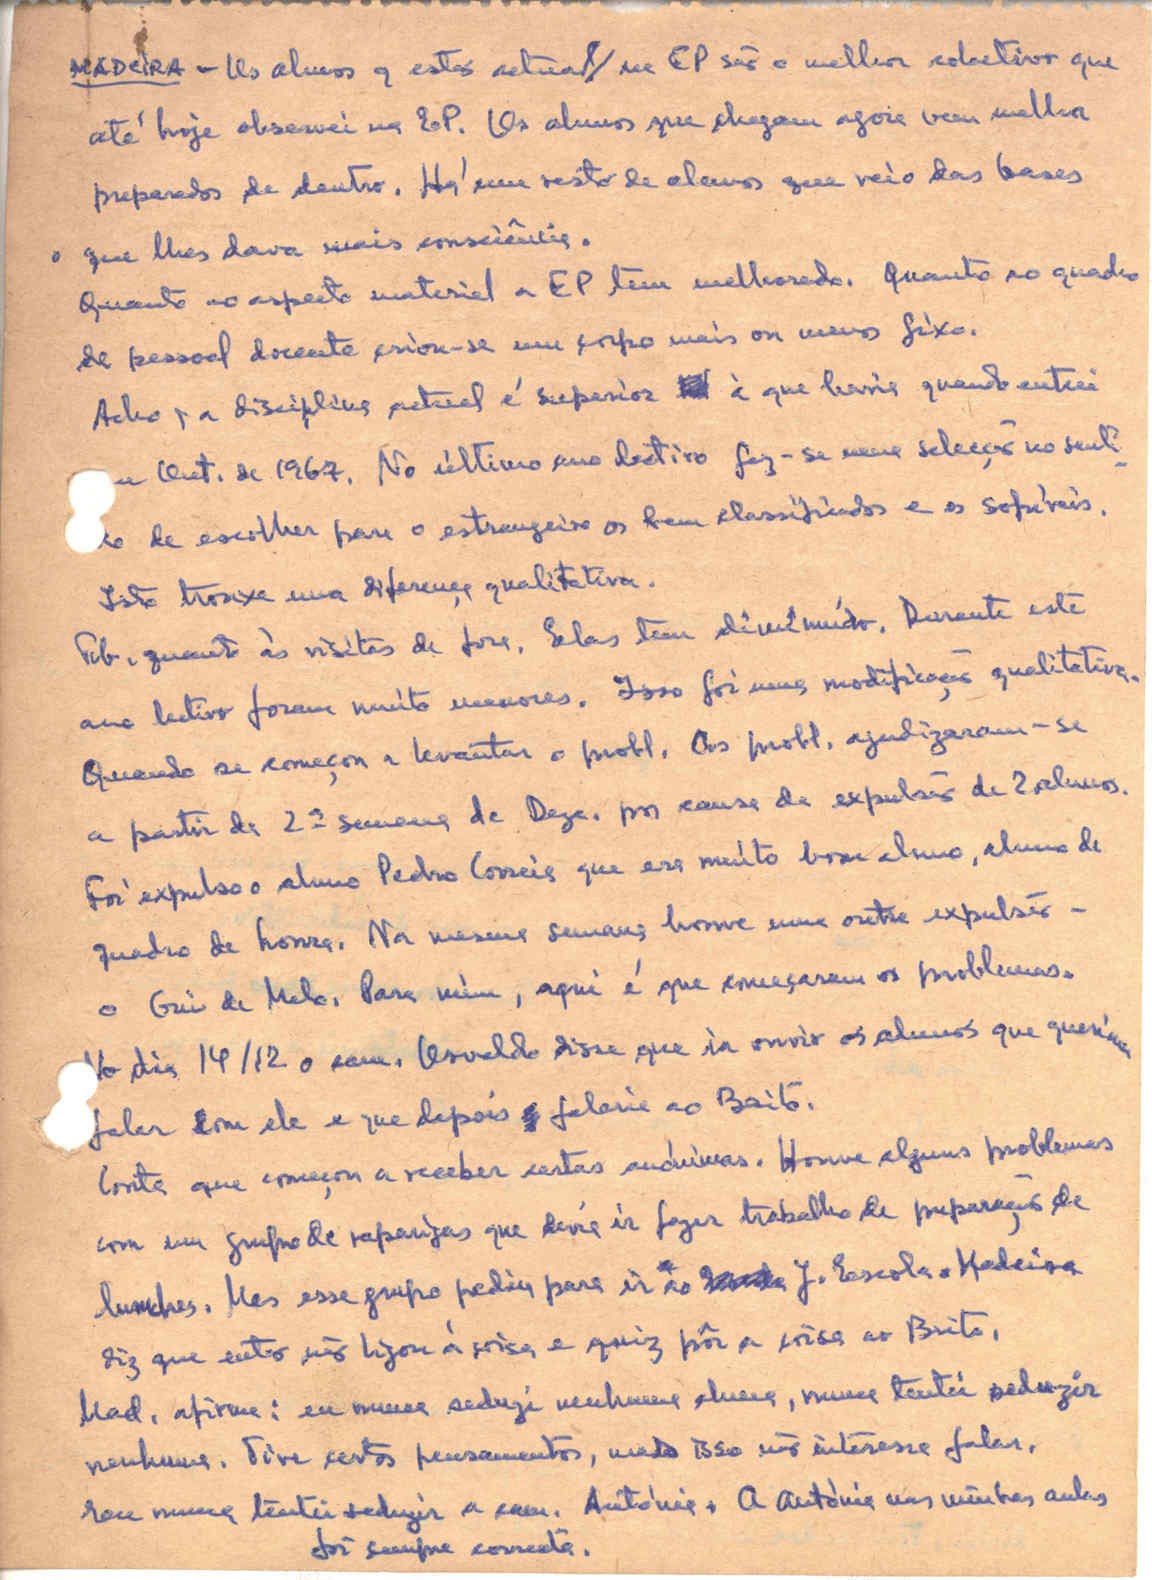 MADEIRA - Os alunos q estão actual/ na EP são o melhor colectivo que
até hoje observei na EP. Os alunos que chegam agora vem melhor
preparados de dentro. Há um resto de alunos que veio das bases
o que lhes dava mais consciência.
Quanto ao aspecto material a EP tem melhorado. Quanto ao quadro
de pessoal docente criou-se um corpo mais ou menos fixo.
Acho q a disciplina actual é superior à que havia quando entrei
em Out. de 1967. No último ano lectivo fez-se uma selecção no senti-
do de escolher para o estrangeiro os bem classificados e os sofríveis.
Isto trouxe uma diferença qualitativa.
Tb. quanto às visitas de fora. Elas tem diminuído. Durante este
ano lectivo foram muito menores. Isso foi uma modificação qualitativa.
Quando se começou a levantar o probl. Os probl. agudizaram-se
a partir da 2ª semana de Deze. por causa da expulsão de 2 alunos.
Foi expulso o aluno Pedro Correia que era muito bom aluno, aluno de
quadro de honra. Na mesma semana houve uma outra expulsão -
o Gui de Melo. Para mim, aqui é que começaram os problemas.
No dia 14/12 o cam. Osvaldo disse que ia ouvir os alunos que queriam
falar com ele e que depois falaria ao Brito.
Conta que começou a receber cartas anónimas. Houve alguns problemas
com um grupo de raparigas que devia ir fazer trabalho de preparação de
lunches. Mas esse grupo pediu para ir ao J. Escola. Madeira
diz que então não ligou à coisa e quiz pôr a coisa ao Brito.
Mad. afirma: eu nunca seduzi nenhuma aluna, nunca tentei seduzir
nenhuma. Tive certos pensamentos, mas isso não interessa falar.
Eu nunca tentei seduzir a cam. Antónia. A Antónia nas minhas aulas
foi sempre correcta.